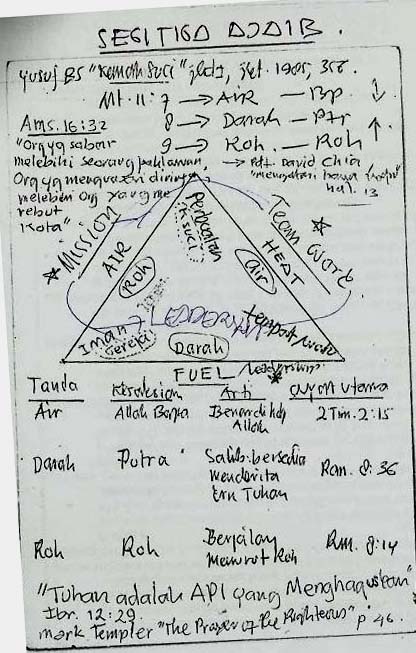 SEGITIGA AJAIB.
Yusuf BS "Kemah Suci" jld 1, jkt. 1985, 356.
Mt. 11:7 → AiR — Bp. ↓
Ams. 16:32 8 → Darah — Ptr ↑
"Org yg sabar 9 → Roh. — Roh
melebihi seorang pahlawan, → Pdt. David Chia
Org yg menguasai dirinya "mengatasi hawa
melebihi Org yang me hal. 13
rebut
Kota"
Mission
AIR
Roh
perbuatan
Ksuci
Team Work
HEAT
air
LEADERSHIP
Iman
Gereja
Darah
tempat
FUEL
Tanda Arti ayat utama
Air Allah Bapa Benar di hdp 2 Tim. 2:15
Allah
Darah Putra Salib: bersedia Rom. 8:36
menderita
Tuhan
Roh Roh Berjalan Rm. 8:14
menurut Roh
"Tuhan adalah API yang Menghaguskan"
Ibr. 12:29.
mark Templer "The Prayer of the Righteous" p 46.